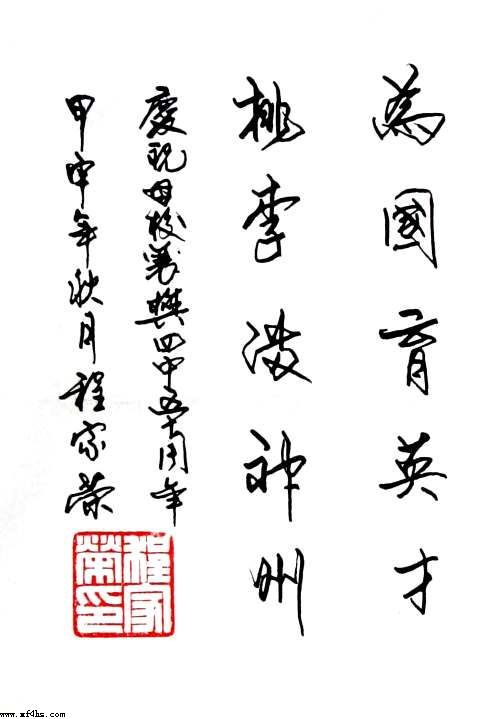 為國育英才
桃李滿神州
慶祝母校襄樊四中五十周年
甲申年秋月程家榮
程家榮印
www.xf4hs.com